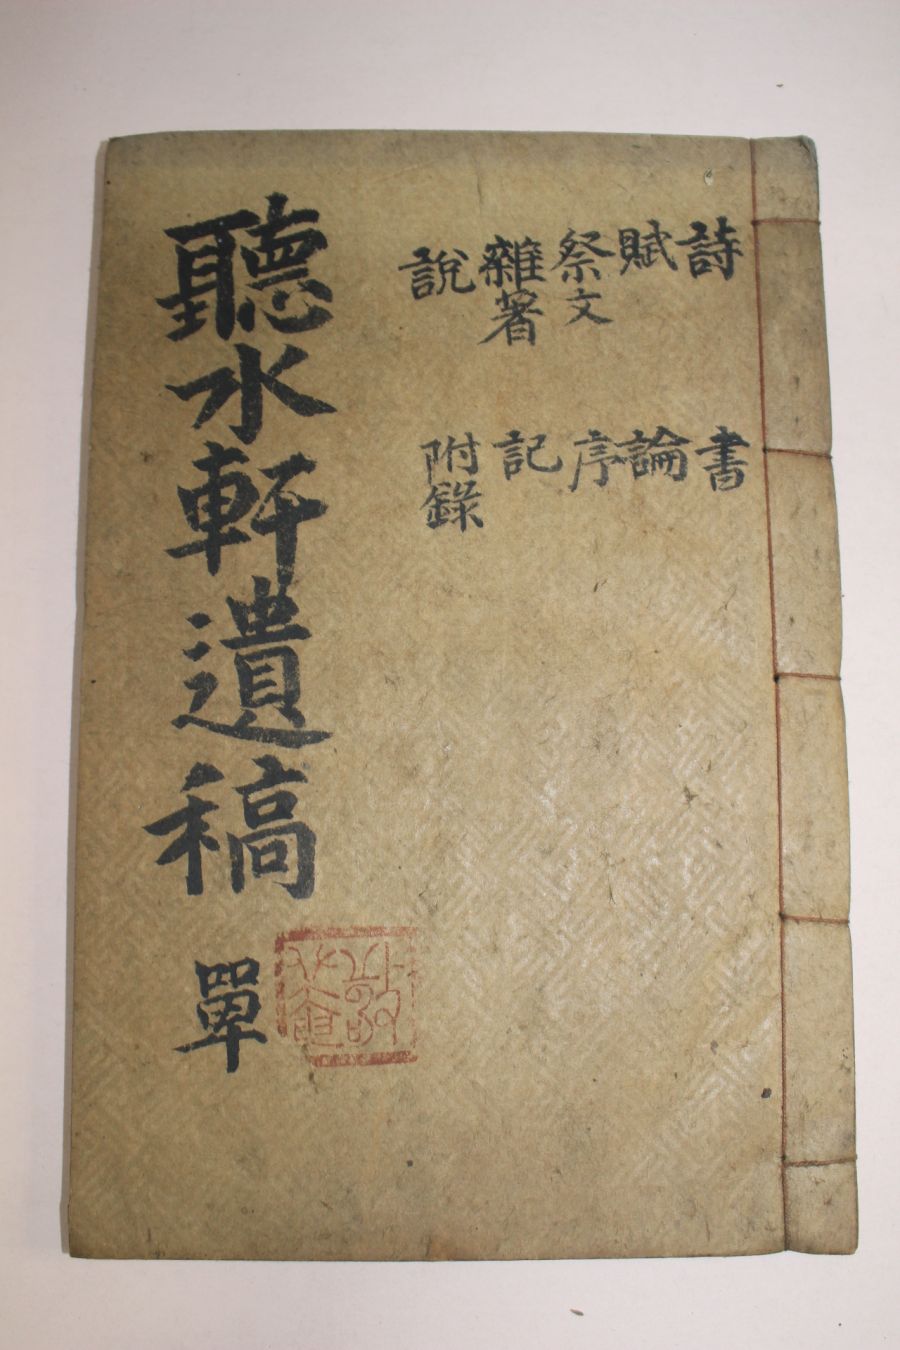 詩
賦
祭文
雜著
說
書
論
序
記
附錄
聽水軒遺稿 單